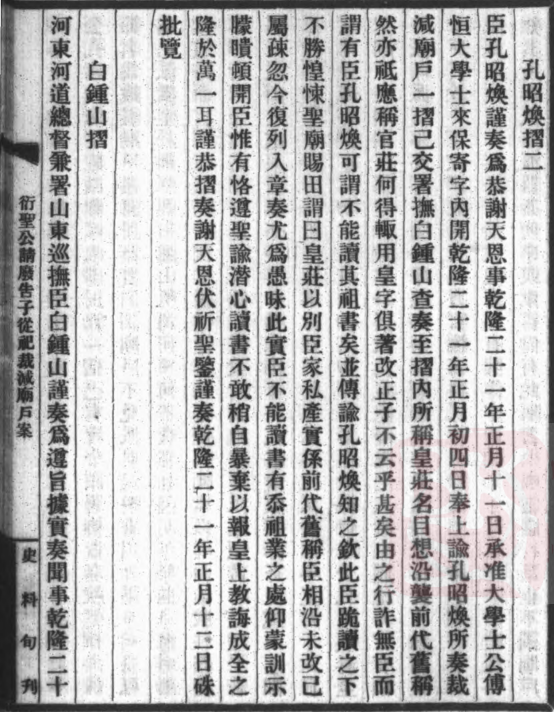 孔昭煥摺二
臣孔昭煥謹奏爲恭謝天恩事乾隆二十一年正月十一日承准大學士公傅
恒大學士來保寄字內開乾隆二十一年正月初四日奉上諭孔昭煥所奏裁
減廟戶一摺已交署撫白鍾山查奏至摺內所稱皇莊名目想沿襲前代舊稱
然亦祗應稱官莊何得輒用皇字俱著改正子不云乎甚矣由之行詐無臣而
謂有臣孔昭煥可謂不能讀其祖書矣並傳諭孔昭煥知之欽此臣跪讀之下
不勝惶悚聖廟賜田謂曰皇莊以別臣家私產實係前代舊稱臣相沿未改已
屬疎忽今復列入章奏尤爲愚昧此實臣不能讀書有忝祖業之處仰蒙訓示
矇瞶頓開臣惟有恪遵聖諭潛心讀書不敢稍自暴棄以報皇上教誨成全之
隆於萬一耳謹恭摺奏謝天恩伏祈聖鑒謹奏乾隆二十一年正月十二日硃
批覽
白鍾山摺
河東河道總督兼署山東巡撫臣白鍾山謹奏爲遵旨據實奏聞事乾隆二十
衍聖公請廢告子從祀裁減廟戶案
史料旬刊